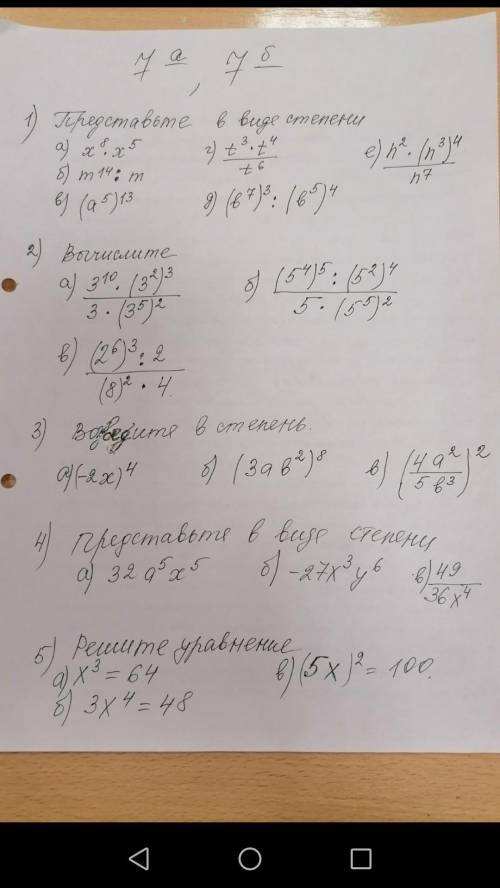 7 а, 7 б
1) Представьте в виде степени
а) x⁸ · x⁵ г) (t³ · t⁴)/t⁶ е) (n² · (n³)⁴)/n⁷
б) m¹⁴ : m
в) (a⁵)¹³ д) (b⁷)³ : (b⁵)⁴
2) Вычислите
а) (3¹⁰ · (3²)³)/(3 · (3⁵)²) б) ((5⁴)⁵ : (5²)⁴)/(5 · (5⁵)²)
в) ((2⁶)³ : 2)/((8)² · 4)
3) Возведите в степень.
а) (-2x)⁴ б) (3ab²)⁸ в) (4a²/5b³)²
4) Представьте в виде степени
а) 32 a⁵x⁵ б) -27x³y⁶ в) 49/36x⁴
5) Решите уравнение
а) x³ = 64 в) (5x)² = 100.
б) 3x⁴ = 48